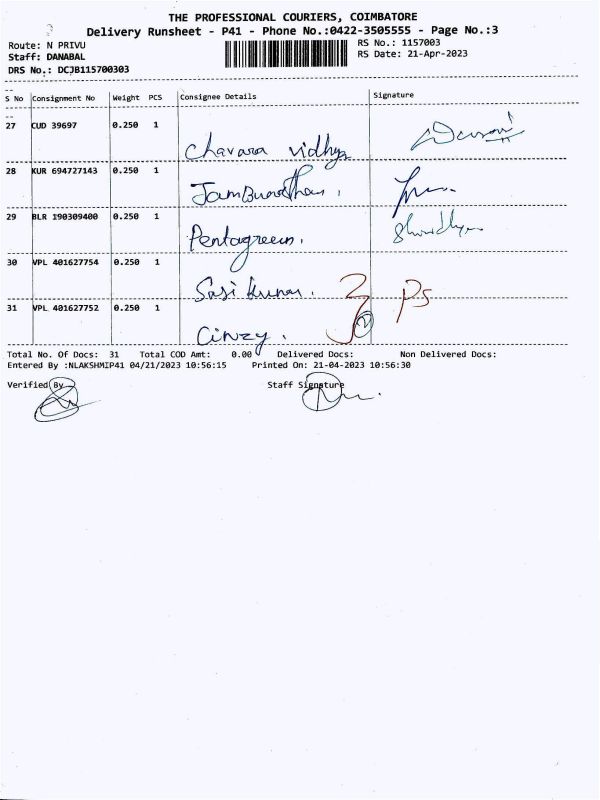 THE PROFESSIONAL COURIERS, COIMBATORE
Delivery Runsheet - P41 - Phone No.:0422-3505555 - Page No.:3
Route: N PRIVU RS No.: 1157003
Staff: DANABAL RS Date: 21-Apr-2023
DRS No.: DCJB115700303
S No Consignment No Weight PCS Consignee Details Signature
27 CUD 39697 0.250 1
Chavara vidhya
28 KUR 694727143 0.250 1
Jambunathan.
29 BLR 190309400 0.250 1
Pentagreen.
30 VPL 401627754 0.250 1
Sasi kumar.
31 VPL 401627752 0.250 1
Cinzy.
Total No. Of Docs: 31 Total COD Amt: 0.00 Delivered Docs: Non Delivered Docs:
Entered By :NLAKSHMIP41 04/21/2023 10:56:15 Printed On: 21-04-2023 10:56:30
Verified By Staff Signature